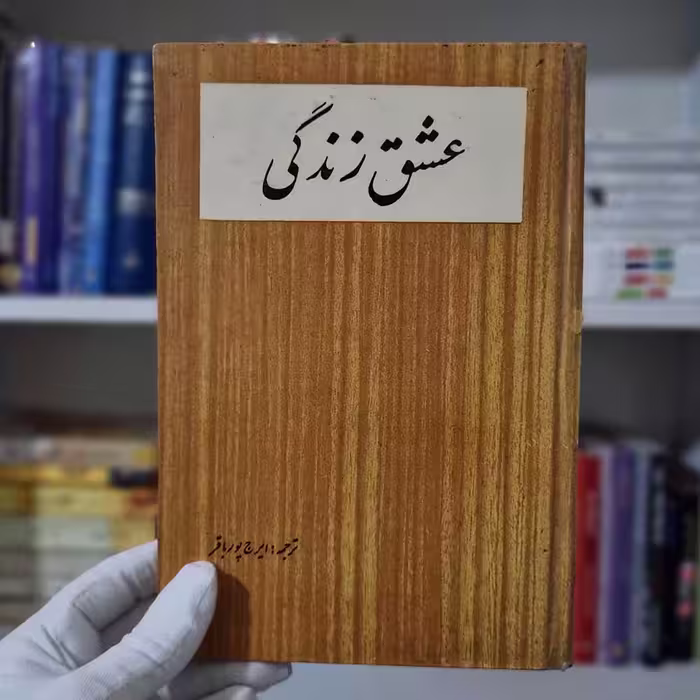 عشق زندگی
ترجمه: ایرج پورباقر